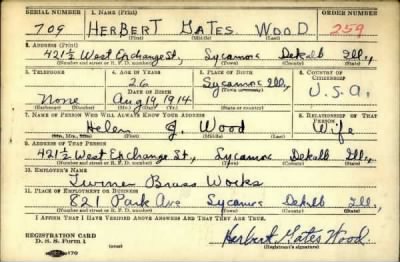 SERIAL NUMBER 1. NAME (Print) ORDER NUMBER
709 HERBERT GATES WOOD 259
(First) (Middle) (Last)
2. ADDRESS (Print)
421½ West Exchange St, Sycamore DeKalb Ill,
(Number and street or R. F. D. number) (Town) (County) (State)
3. TELEPHONE 4. AGE IN YEARS 5. PLACE OF BIRTH 6. COUNTRY OF CITIZENSHIP
26 Sycamore
None DATE OF BIRTH (Town or county) U.S.A.
Aug 19, 1914 Ill,
(Exchange) (Number) (Mo.) (Day) (Yr.) (State or country)
7. NAME OF PERSON WHO WILL ALWAYS KNOW YOUR ADDRESS 8. RELATIONSHIP OF THAT PERSON
Helen J. Wood Wife
(Mr., Mrs., Miss) (First) (Middle) (Last)
9. ADDRESS OF THAT PERSON
421½ West Exchange St, Sycamore DeKalb Ill,
(Number and street or R. F. D. number) (Town) (County) (State)
10. EMPLOYER'S NAME
Turner Brass Works
11. PLACE OF EMPLOYMENT OR BUSINESS
821 Park Ave Sycamore DeKalb Ill,
(Number and street or R. F. D. number) (Town) (County) (State)
I AFFIRM THAT I HAVE VERIFIED ABOVE ANSWERS AND THAT THEY ARE TRUE.
REGISTRATION CARD
D. S. S. Form 1 Herbert Gates Wood
(Registrant's signature)